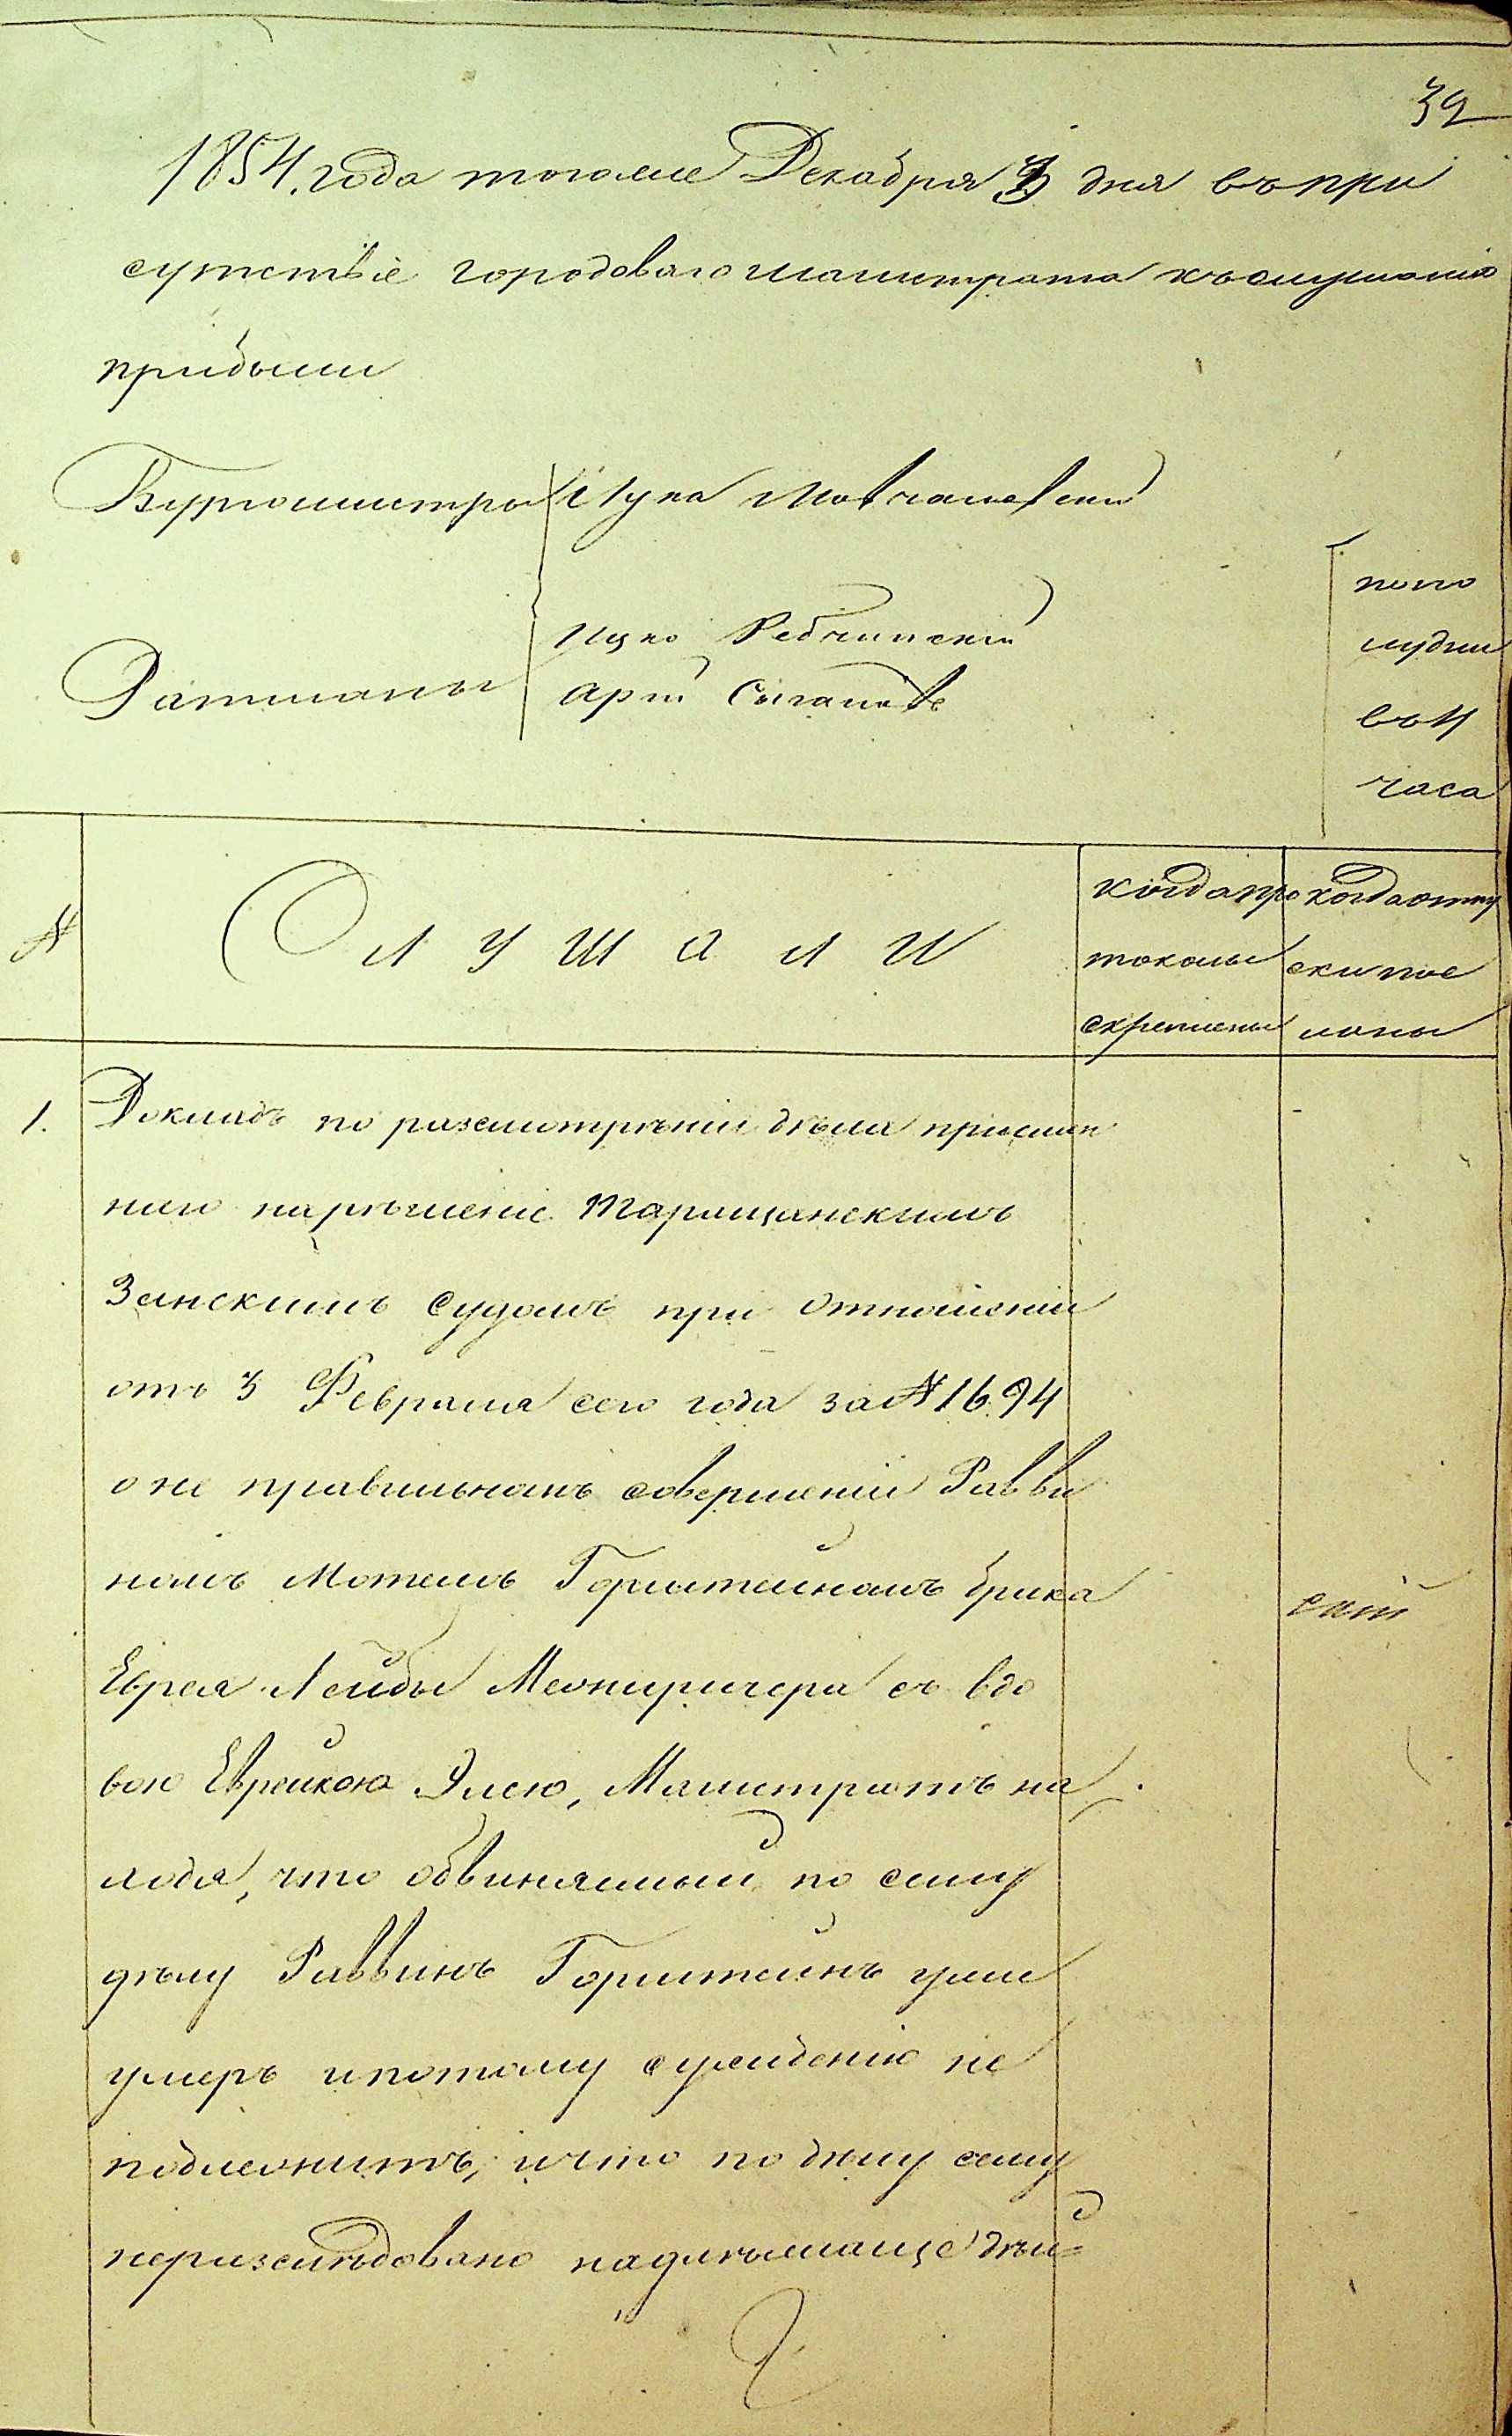 32
1854. года тогоже Декабря 3 дня въ при
сутствіе городоваго магистрата къ слушанію
прибыли
Бургомистры Лука Мовчановскій
Ицко Рабчинскій
Ратманы
попо
лудни
въ 4
часа
№
Слушали
когда про
токолы
скреплены
когда отпу
ски пос
ланы
1. Докладъ по разсмотрѣніи дѣла прислан
наго на рѣшеніе Таращанскимъ
Земскимъ Судомъ при отношеніи
отъ 3 Февраля сего года за № 1694
о не правильномъ совершеніи Рабви
номъ Мотелемъ Горштейномъ брака
Еврея Лейбы Межиричера съ вдо
вою Еврейкою Элею, Магистратъ на
ходя, что обвиняемый по сему
дѣлу Раввинъ Горштейнъ уже
умеръ и потому сужденію не
подлежитъ, и что по дѣлу сему
неразслѣдовано надлежаще дѣй=